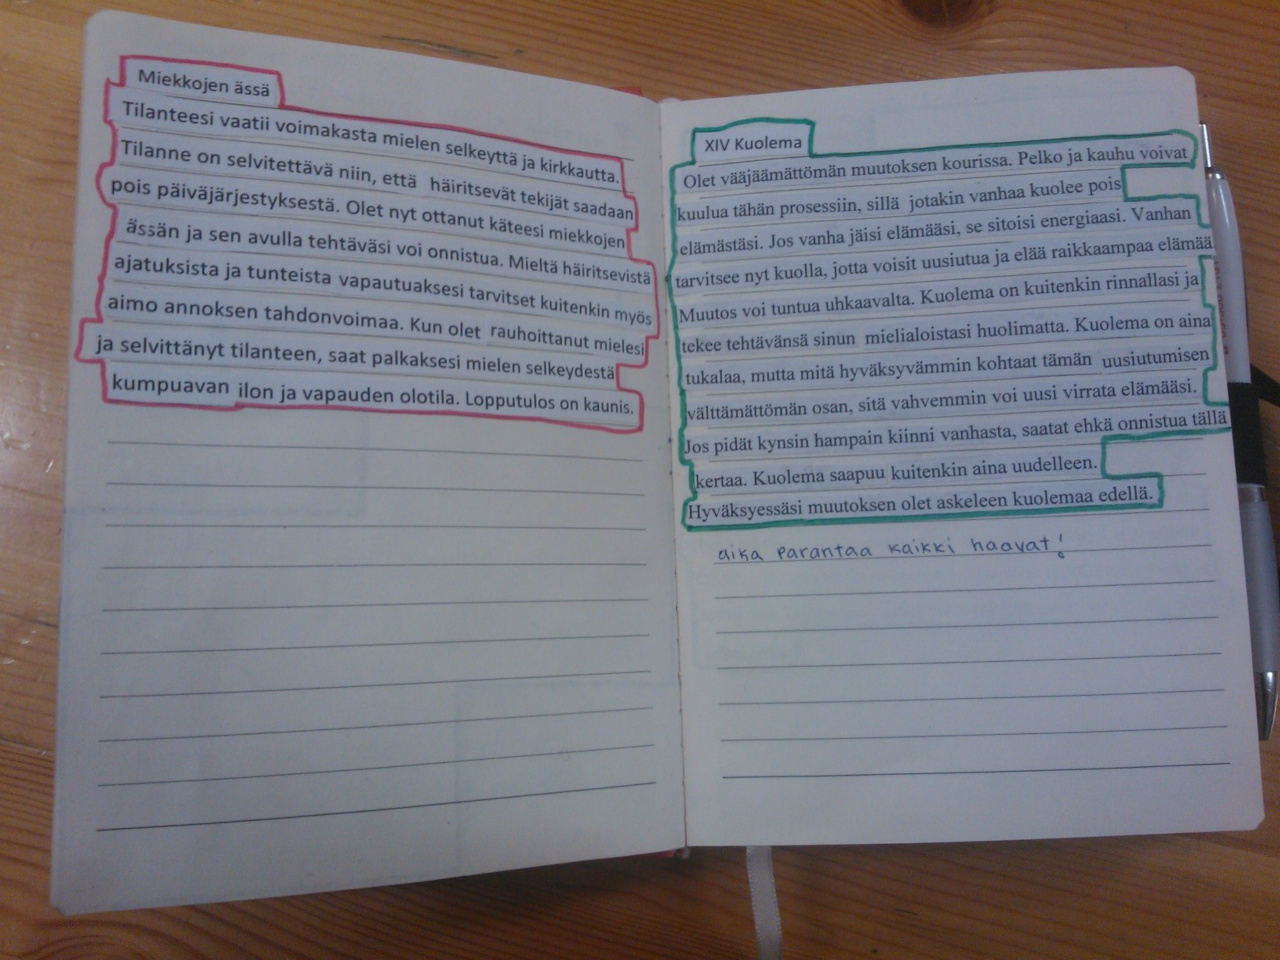 Miekkojen ässä
Tilanteesi vaatii voimakasta mielen selkeyttä ja kirkkautta.
Tilanne on selvitettävä niin, että häiritsevät tekijät saadaan
pois päiväjärjestyksestä. Olet nyt ottanut käteesi miekkojen
ässän ja sen avulla tehtäväsi voi onnistua. Mieltä häiritsevistä
ajatuksista ja tunteista vapautuaksesi tarvitset kuitenkin myös
aimo annoksen tahdonvoimaa. Kun olet rauhoittanut mielesi
ja selvittänyt tilanteen, saat palkaksesi mielen selkeydestä
kumpuavan ilon ja vapauden olotila. Lopputulos on kaunis.
XIV Kuolema
Olet vääjäämättömän muutoksen kourissa. Pelko ja kauhu voivat
kuulua tähän prosessiin, sillä jotakin vanhaa kuolee pois
elämästäsi. Jos vanha jäisi elämääsi, se sitoisi energiaasi. Vanhan
tarvitsee nyt kuolla, jotta voisit uusiutua ja elää raikkaampaa elämää
Muutos voi tuntua uhkaavalta. Kuolema on kuitenkin rinnallasi ja
tekee tehtävänsä sinun mielialoistasi huolimatta. Kuolema on aina
tukalaa, mutta mitä hyväksyvämmin kohtaat tämän uusiutumisen
välttämättömän osan, sitä vahvemmin voi uusi virrata elämääsi.
Jos pidät kynsin hampain kiinni vanhasta, saatat ehkä onnistua tällä
kertaa. Kuolema saapuu kuitenkin aina uudelleen.
Hyväksyessäsi muutoksen olet askeleen kuolemaa edellä.
aika parantaa kaikki haavat!